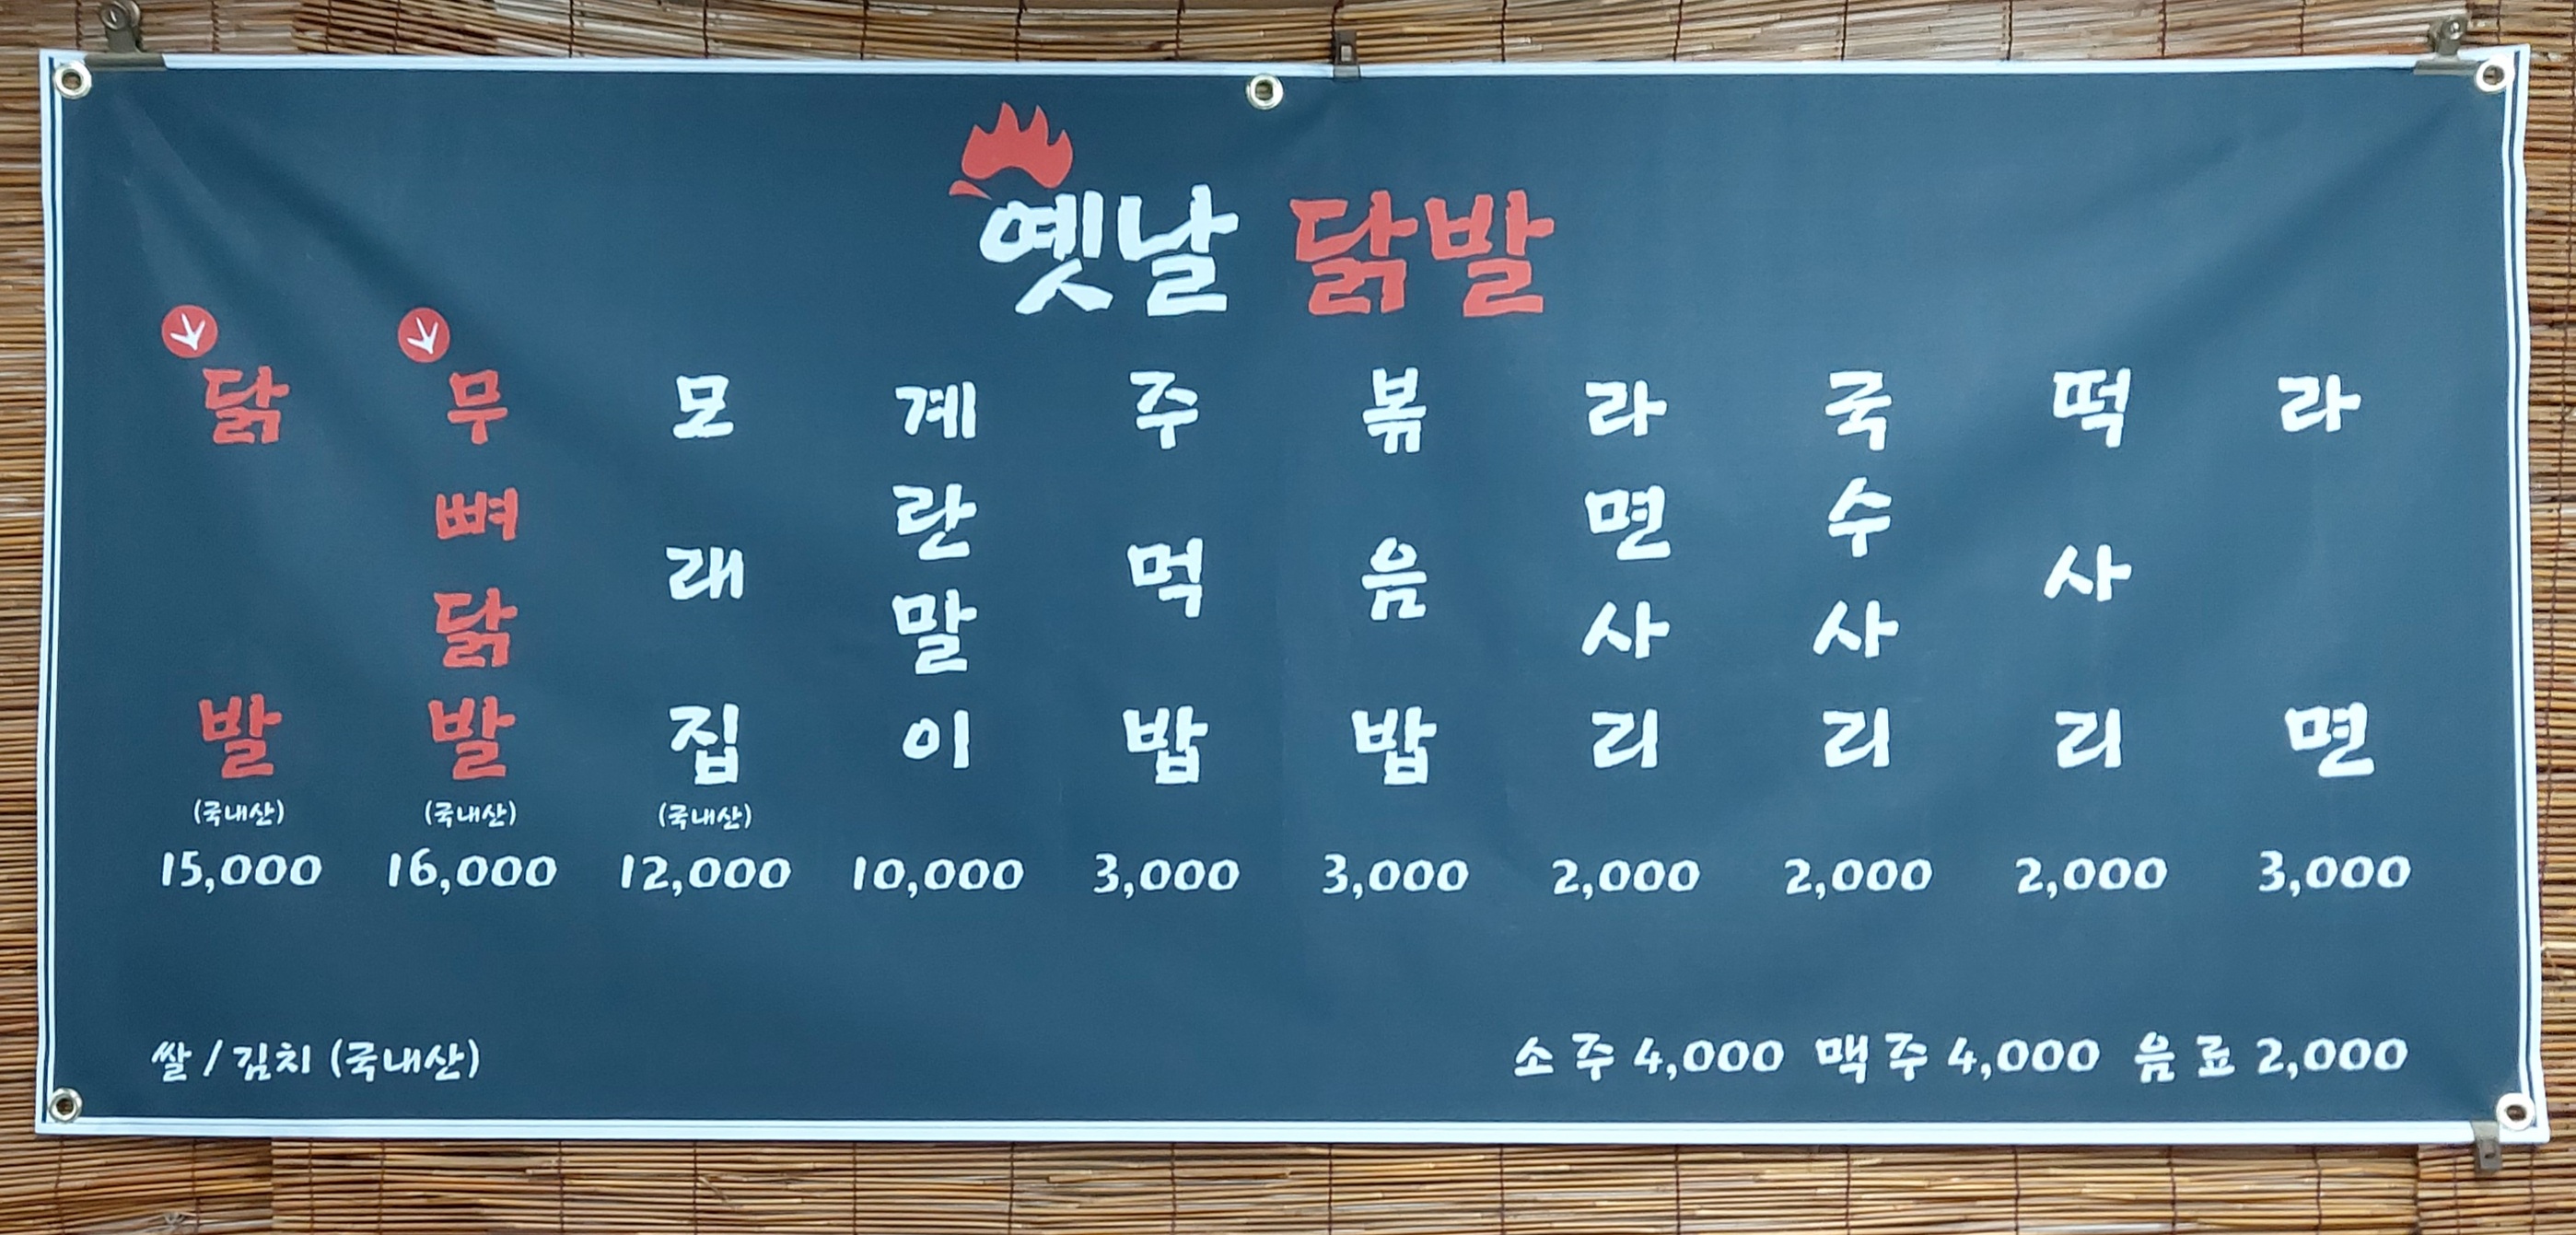 옛날 닭발
닭발
(국내산)
15,000
무뼈닭발
(국내산)
16,000
모래집
(국내산)
12,000
계란말이
10,000
주먹밥
3,000
볶음밥
3,000
라면사리
2,000
국수사리
2,000
떡사리
2,000
라면
3,000
쌀 / 김치 (국내산)
소주 4,000 맥주 4,000 음료 2,000